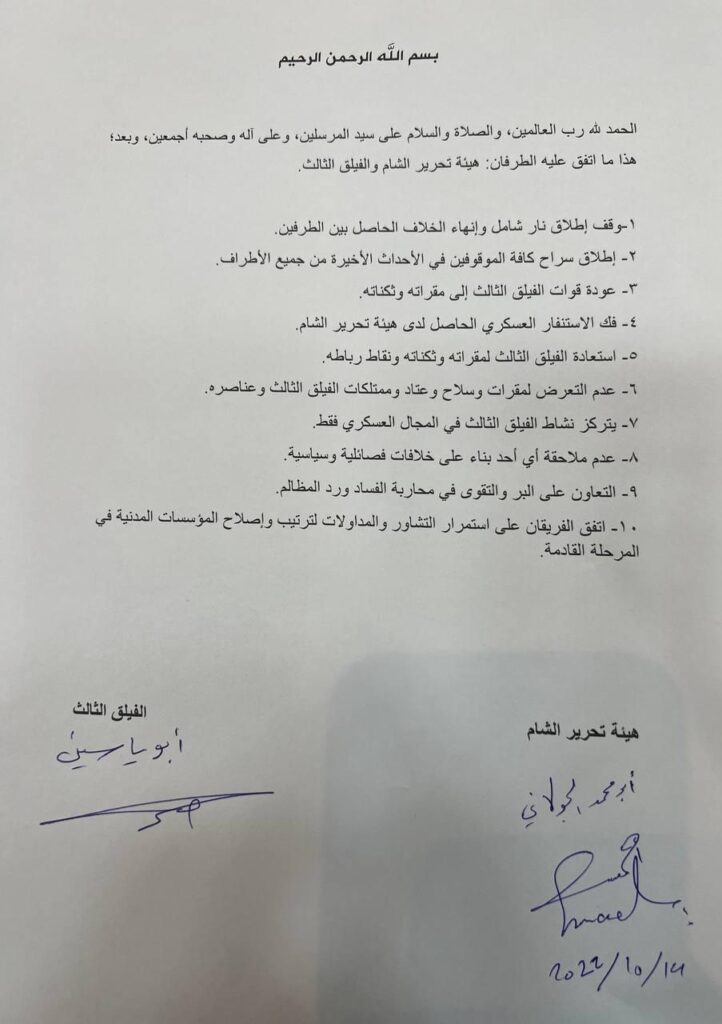 بسم اللَّه الرحمن الرحيم
الحمد لله رب العالمين، والصلاة والسلام على سيد المرسلين، وعلى آله وصحبه أجمعين، وبعد؛
هذا ما اتفق عليه الطرفان: هيئة تحرير الشام والفيلق الثالث.
١-وقف إطلاق نار شامل وإنهاء الخلاف الحاصل بين الطرفين.
٢- إطلاق سراح كافة الموقوفين في الأحداث الأخيرة من جميع الأطراف.
٣- عودة قوات الفيلق الثالث إلى مقراته وثكناته.
٤- فك الاستنفار العسكري الحاصل لدى هيئة تحرير الشام.
٥- استعادة الفيلق الثالث لمقراته وثكناته ونقاط رباطه.
٦- عدم التعرض لمقرات وسلاح وعتاد وممتلكات الفيلق الثالث وعناصره.
٧- يتركز نشاط الفيلق الثالث في المجال العسكري فقط.
٨- عدم ملاحقة أي أحد بناء على خلافات فصائلية وسياسية.
٩- التعاون على البر والتقوى في محاربة الفساد ورد المظالم.
١٠- اتفق الفريقان على استمرار التشاور والمداولات لترتيب وإصلاح المؤسسات المدنية في
المرحلة القادمة.
هيئة تحرير الشام
أبو محمد الجولاني
2022/10/14
الفيلق الثالث
أبو ياسين